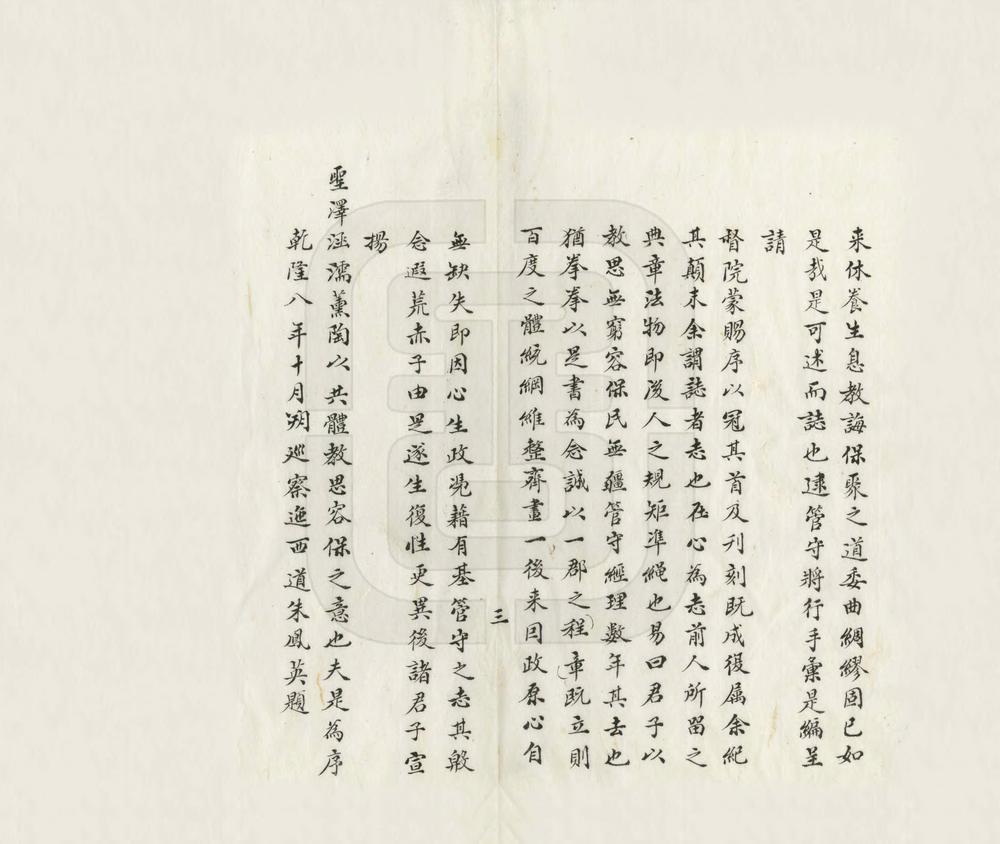 来休養生息教誨保聚之道委曲綢繆固已如
是哉是可述而誌也逮管守將行手彙是編呈
請
督院蒙賜序以冠其首及刊刻既成復屬余紀
其顛末余謂誌者志也在心為志前人所畄之
典章法物即後人之規矩凖繩也易曰君子以
教思無窮容保民無疆管守經理數年其去也
猶拳拳以是書為念誠以一郡之程章既立則
百度之體統綱維整齊畫一後来因政原心自
三
無缺失即因心生政凴藉有基管守之志其殷
念遐荒赤子由是遂生復性更異後諸君子宣
揚
聖澤涵濡薰陶以共體教思容保之意也夫是為序
乾隆八年十月朔巡察迤西道朱鳳英題